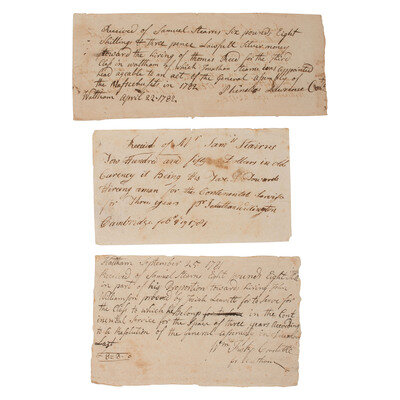 Received of Samuel Stearns Six pounds Eight
Shillings & three pence Lawfull Silver money
toward the hiring of thomas Rice for the third
Clas in waltham of which Jonathan Stearns was appointed
head agreable to an act of the General assembly of
the Massachusetts in 1782
Waltham April 22: 1782. Phinehas Lawrence Con
Receid of Mr Samll Stearns
Two Hundred and fifty Dollars in old
Currency it Being his Tax Towards
Hireing a man for the Continental Service
for Three years pr Jonathan
Cambridge Feb 1781
Waltham September 25 1781
Received of Samuel Stearns pounds Eight
in part of his Proportion toward hireing John
Williamson by Josiah for to Serve for
the Class to which he belong in the Cont
inental Service for the Space of three years According
to a Resolution of the General assembly
Last
£-8-0 Wm Constable
for Waltham